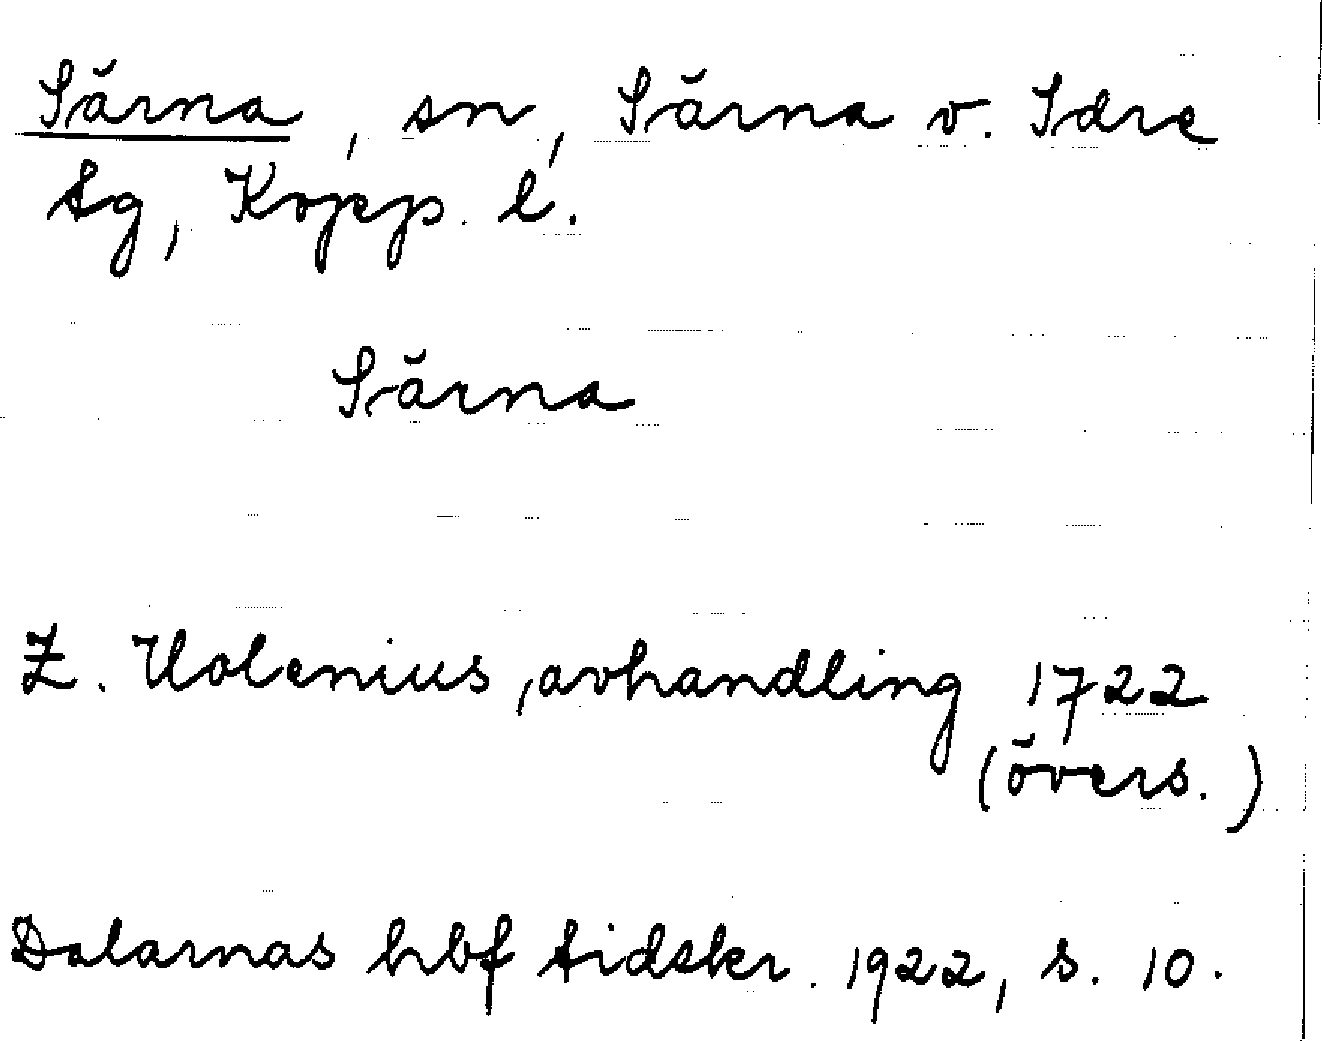 Särna, sn, Särna o. Idre
tg, Kopp. l.
Särna
Z. Holenius, avhandling 1722
(övers.)
Dalarnas hbf tidskr. 1922, s. 10.